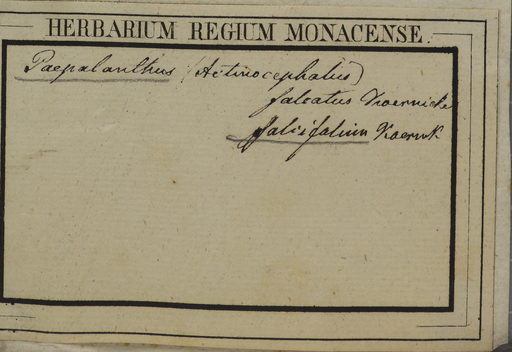 HERBARIUM REGIUM MONACENSE.
Paepalanthus (Actinocephalus)
falcatus Koernicke
falcifolium Koernk